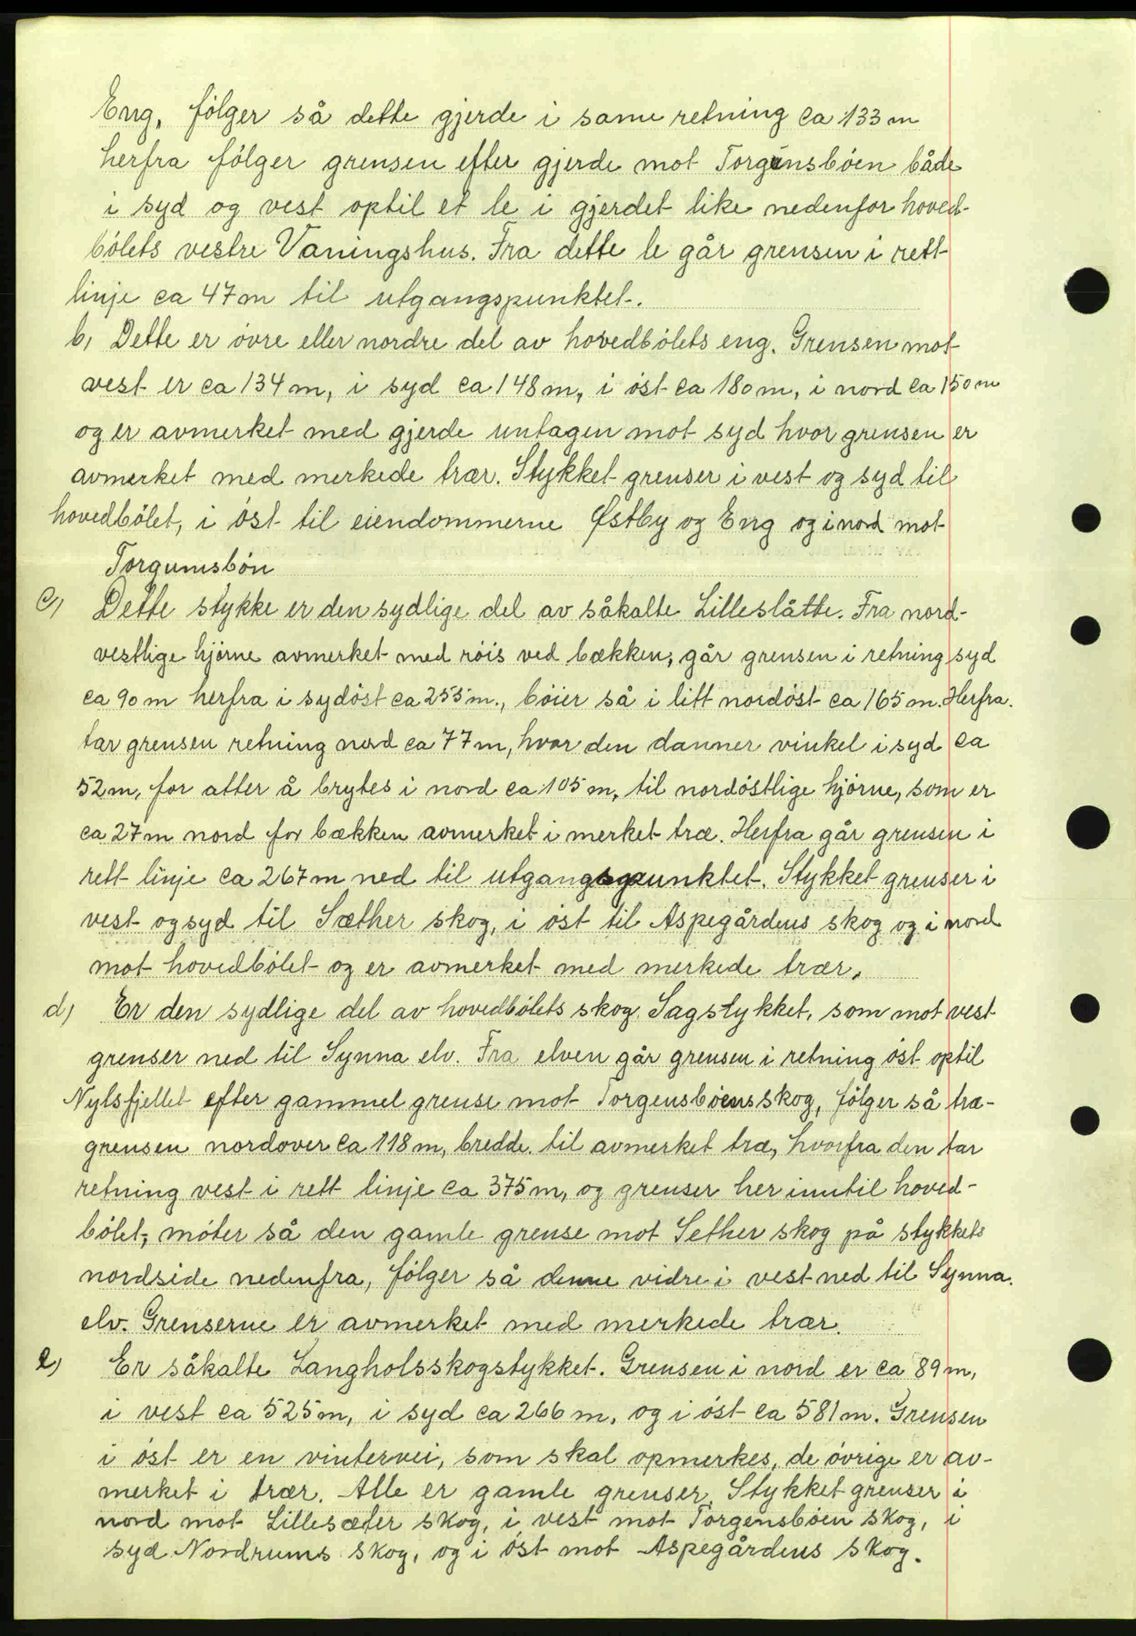 Eng, følger så dette gjerde i same retning ca 133 m
herfra følger grensen efter gjerde mot Torgunsbøen både
i syd og vest optil et le i gjerdet like nedenfor hoved-
bølets vestre Vaningshus. Fra dette le går grensen i rett
linje ca 47 m til utgangspunktet.
b, Dette er øvre eller nordre del av hovedbølets eng. Grensen mot
vest er ca 134 m, i syd ca 148 m, i øst ca 180 m, i nord ca 150 m
og er avmerket med gjerde untagen mot syd hvor grensen er
avmerket med merkede trær. Stykket grenser i vest og syd til
hovedbølet, i øst til eiendommerne Østby og Eng og i nord mot
Torgumsbøn
c) Dette stykke er den sydlige del av såkalte Lilleslåtte. Fra nord-
vestlige hjørne avmerket med røis ved bækken, går grensen i retning syd
ca 90 m herfra i sydøst ca 255 m., bøier så i litt nordøst ca 165 m. Herfra
tar grensen retning nord ca 77 m, hvor den danner vinkel i syd ca
52 m, for atter å brytes i nord ca 105 m, til nordøstlige hjørne, som er
ca 27 m nord for bækken avmerket i merket træ. Herfra går grensen i
rett linje ca 267 m ned til utgangspunktet. Stykket grenser i
vest og syd til Sæther skog, i øst til Aspegårdens skog og i nord
mot hovedbølet og er avmerket med merkede trær.
d) Er den sydlige del av hovedbølets skog Sagstykket, som mot vest
grenser ned til Synna elv. Fra elven går grensen i retning øst optil
Nylsfjellet efter gammel grense mot Torgensbøens skog, følger så træ-
grensen nordover ca 118 m, bredde til avmerket træ, hvorfra den tar
retning vest i rett linje ca 375 m, og grenser her inntil hoved-
bølet, møter så den gamle grense mot Sether skog på stykkets
nordside nedenfra, følger så denne vidre i vest ned til Synna
elv. Grenserne er avmerket med merkede trær.
e) Er såkalte Langholsskogstykket. Grensen i nord er ca 89 m,
i vest ca 525 m, i syd ca 266 m, og i øst ca 581 m. Grensen
i øst er en vintervei, som skal opmerkes, de øvrige er av-
merket i trær. Alle er gamle grenser. Stykket grenser i
nord mot Lillesæter skog, i vest mot Torgensbøen skog, i
syd Nordrums skog, og i øst mot Aspegårdens skog.